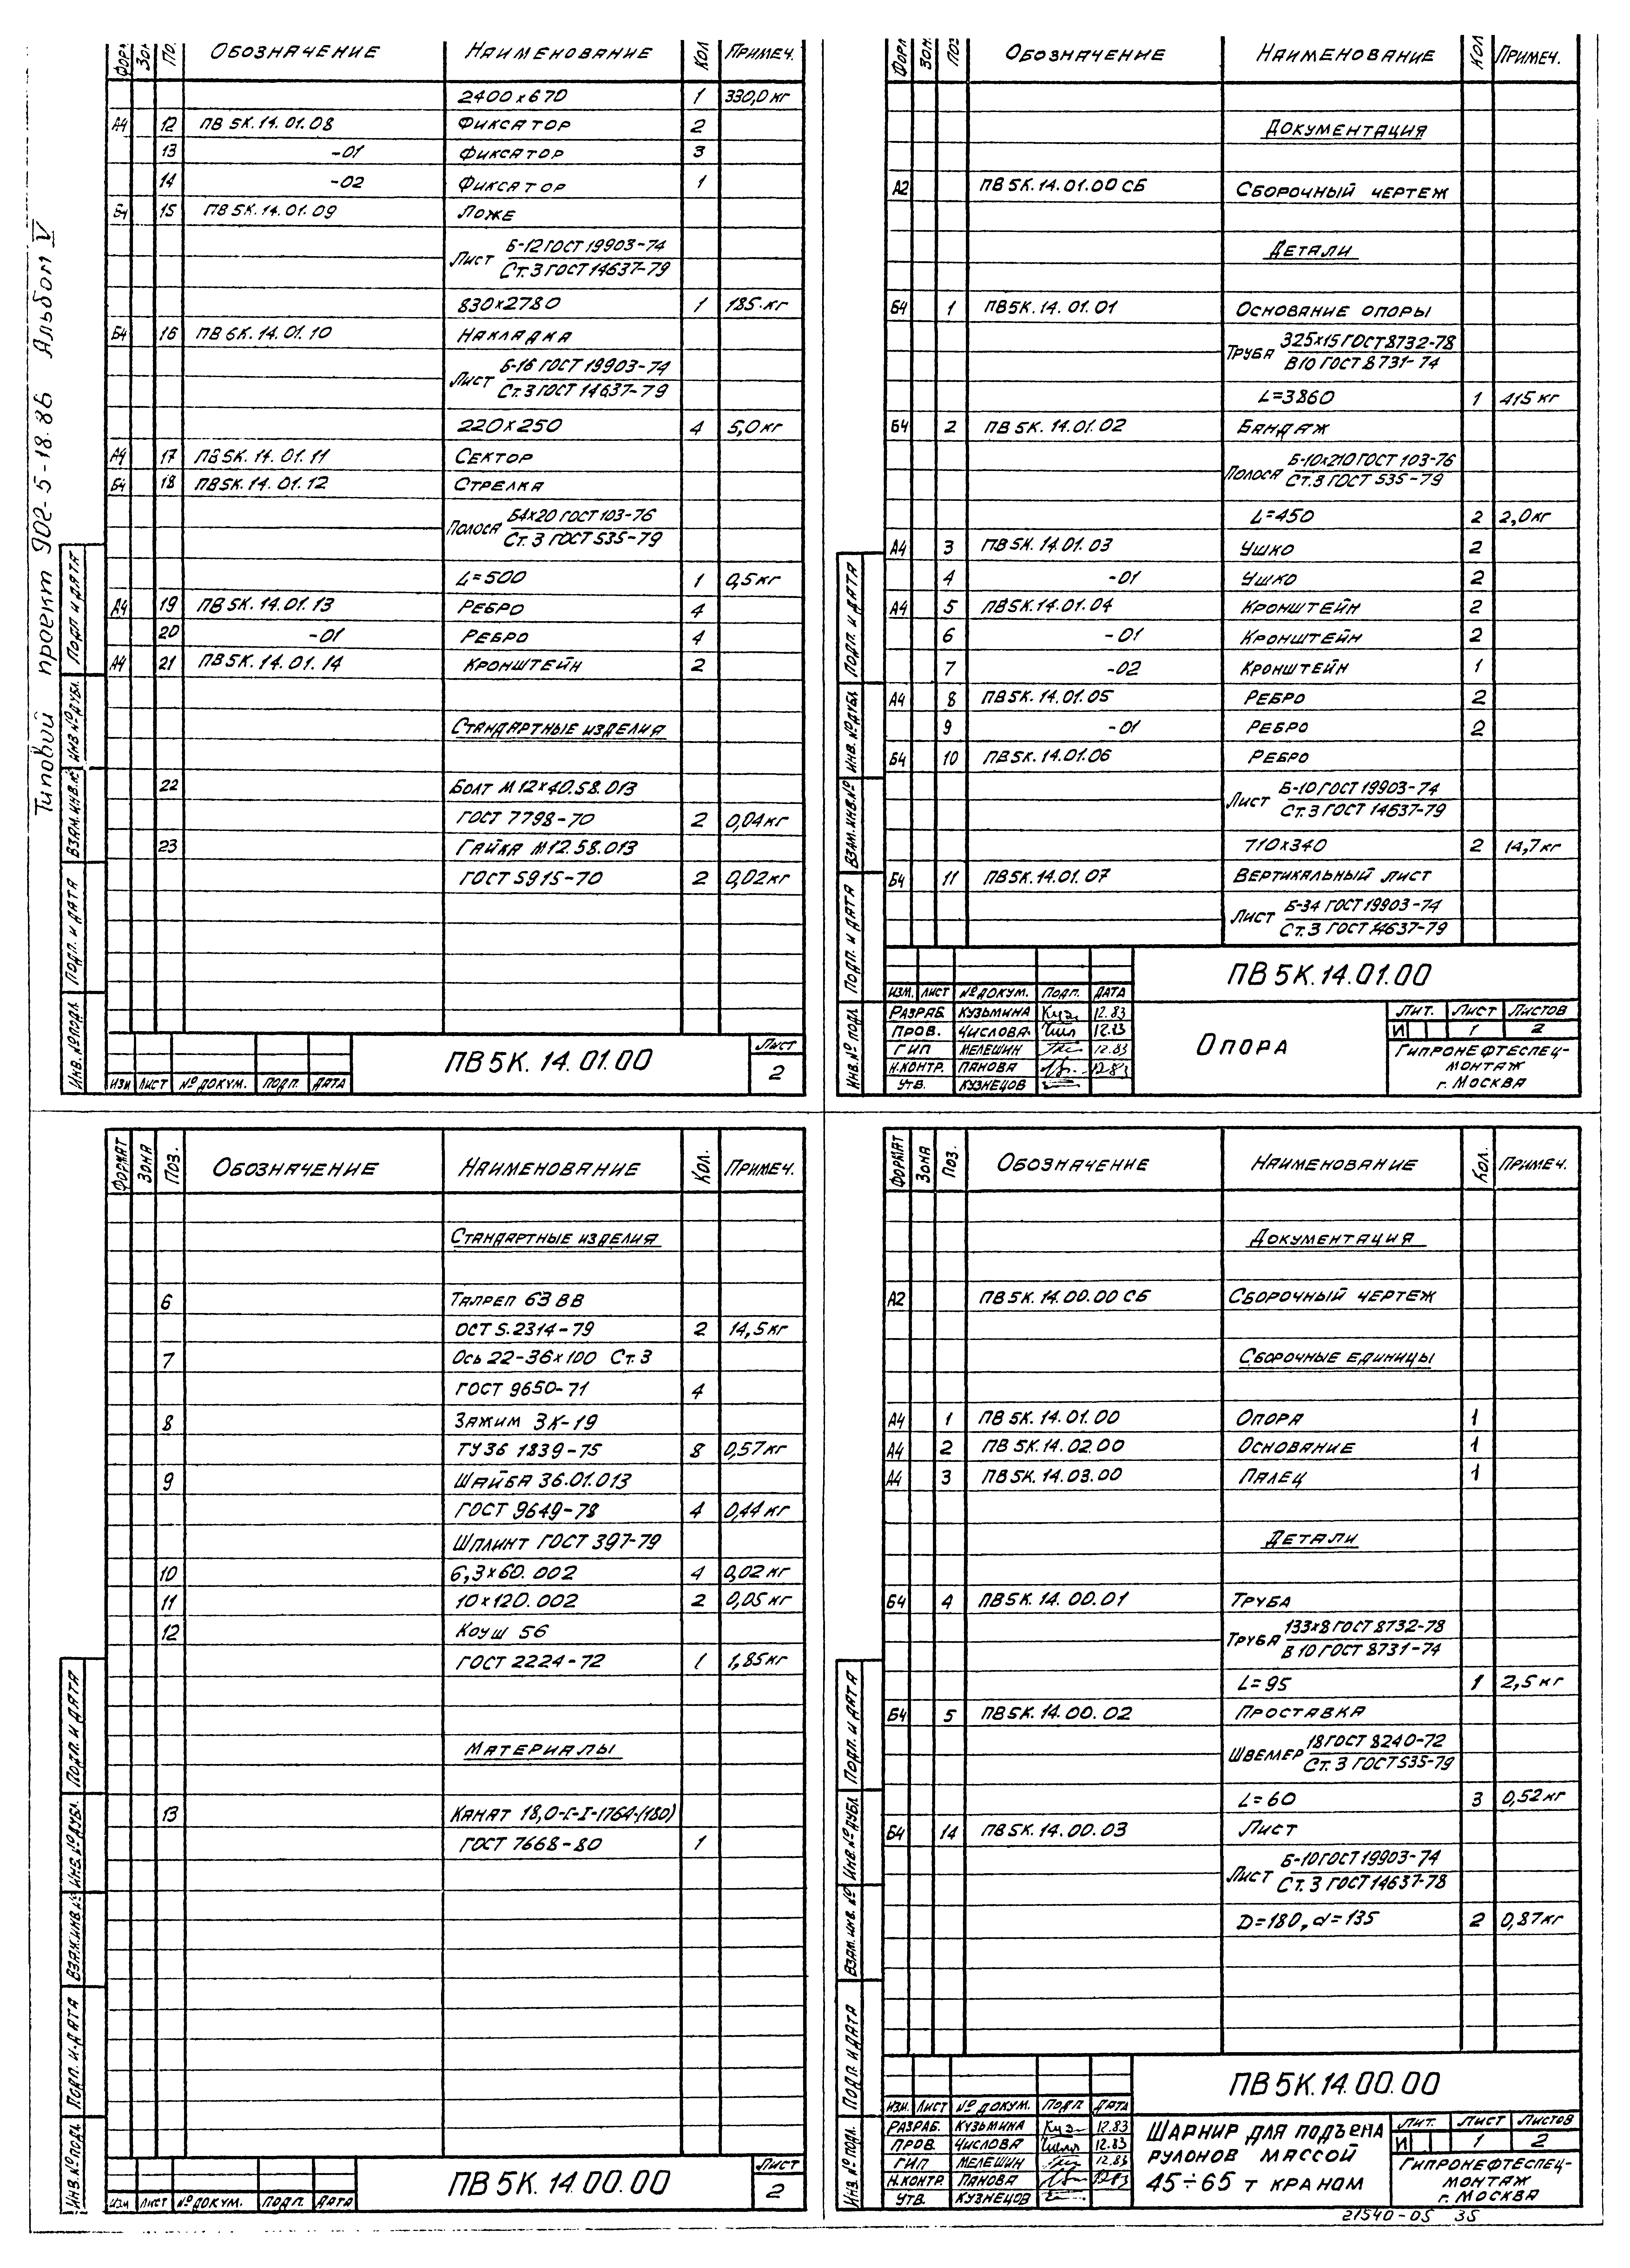 Типовий проект 902-5-18.86 Альбом V
Обозначение Наименование Кол Примеч.
2400×670 1 330,0 кг
А4 12 ПВ 5К.14.01.08 Фиксатор 2
13 -01 Фиксатор 3
14 -02 Фиксатор 1
Б4 15 ПВ 5К.14.01.09 Ложе
Лист Б-12 ГОСТ 19903-74
Ст.3 ГОСТ 14637-79
830×2780 1 185 кг
Б4 16 ПВ 6К.14.01.10 Накладка
Лист Б-16 ГОСТ 19903-74
Ст.3 ГОСТ 14637-79
220×250 4 5,0 кг
А4 17 ПВ 5К.14.01.11 Сектор
Б4 18 ПВ 5К.14.01.12 Стрелка
Полоса Б4×20 ГОСТ 103-76
Ст.3 ГОСТ 535-79
L=500 1 0,5 кг
А4 19 ПВ 5К.14.01.13 Ребро 4
20 -01 Ребро 4
А4 21 ПВ 5К.14.01.14 Кронштейн 2
Стандартные изделия
22 Болт М12×40.58.013
ГОСТ 7798-70 2 0,04 кг
23 Гайка М12.58.013
ГОСТ 5915-70 2 0,02 кг
Подп. и дата
Инв. № дубл.
Взам. инв. №
Подп. и дата
Инв. № подл.
Изм Лист № докум. Подп. Дата
ПВ 5К.14.01.00
Лист
2
Обозначение Наименование Кол Примеч.
Документация
А2 ПВ 5К.14.01.00 СБ Сборочный чертеж
Детали
Б4 1 ПВ 5К.14.01.01 Основание опоры
Труба 325×15 ГОСТ 8732-78
В10 ГОСТ 8731-74
L=3860 1 415 кг
Б4 2 ПВ 5К.14.01.02 Бандаж
Полоса Б-10×210 ГОСТ 103-76
Ст.3 ГОСТ 535-79
L=450 2 2,0 кг
А4 3 ПВ 5К.14.01.03 Ушко 2
4 -01 Ушко 2
А4 5 ПВ 5К.14.01.04 Кронштейн 2
6 -01 Кронштейн 2
7 -02 Кронштейн 1
А4 8 ПВ 5К.14.01.05 Ребро 2
9 -01 Ребро 2
Б4 10 ПВ 5К.14.01.06 Ребро
Лист Б-10 ГОСТ 19903-74
Ст.3 ГОСТ 14637-79
710×340 2 14,7 кг
Б4 11 ПВ 5К.14.01.07 Вертикальный лист
Лист Б-34 ГОСТ 19903-74
Ст.3 ГОСТ 14637-79
Подп. и дата
Инв. № дубл.
Взам. инв. №
Подп. и дата
Инв. № подл.
ПВ 5К.14.01.00
Изм. Лист № докум. Подп. Дата
Разраб. Кузьмина 12.83
Пров. Числова 12.83
ГИП Мелешин 12.83
Н.контр. Панова 12.83
Утв. Кузнецов
Опора
Лит. Лист Листов
И 1 2
Гипронефтеспец-
монтаж
г. Москва
Формат Зона Поз. Обозначение Наименование Кол. Примеч.
Стандартные изделия
6 Талреп 63 ВВ
ОСТ 5.2314-79 2 14,5 кг
7 Ось 22-36×100 Ст.3
ГОСТ 9650-71 4
8 Зажим ЗК-19
ТУ36 1839-75 8 0,57 кг
9 Шайба 36.01.013
ГОСТ 9649-78 4 0,44 кг
Шплинт ГОСТ 397-79
10 6,3×60.002 4 0,02 кг
11 10×120.002 2 0,05 кг
12 Коуш 56
ГОСТ 2224-72 1 1,85 кг
Материалы
13 Канат 18,0-Г-I-1764-(180)
ГОСТ 7668-80 1
Подп. и дата
Инв. № дубл.
Взам. инв. №
Подп. и дата
Инв. № подл.
Изм Лист № докум. Подп. Дата
ПВ 5К.14.00.00
Лист
2
Формат Зона Поз. Обозначение Наименование Кол. Примеч.
Документация
А2 ПВ 5К.14.00.00 СБ Сборочный чертеж
Сборочные единицы
А4 1 ПВ 5К.14.01.00 Опора 1
А4 2 ПВ 5К.14.02.00 Основание 1
А4 3 ПВ 5К.14.03.00 Палец 1
Детали
Б4 4 ПВ 5К.14.00.01 Труба
Труба 133×8 ГОСТ 8732-78
В 10 ГОСТ 8731-74
L=95 1 2,5 кг
Б4 5 ПВ 5К.14.00.02 Проставка
Швеллер 18 ГОСТ 8240-72
Ст.3 ГОСТ 535-79
L=60 3 0,52 кг
Б4 14 ПВ 5К.14.00.03 Лист
Лист Б-10 ГОСТ 19903-74
Ст.3 ГОСТ 14637-78
D=180, d=135 2 0,87 кг
Подп. и дата
Инв. № дубл.
Взам. инв. №
Подп. и дата
Инв. № подл.
ПВ 5К.14.00.00
Изм. Лист № докум. Подп Дата
Разраб. Кузьмина 12.83
Пров. Числова 12.83
ГИП Мелешин 12.83
Н.контр Панова 12.83
Утв. Кузнецов
Шарнир для подъема
рулонов массой
45÷65 т краном
Лит. Лист Листов
И 1 2
Гипронефтеспец-
монтаж
г. Москва
21540-05 35